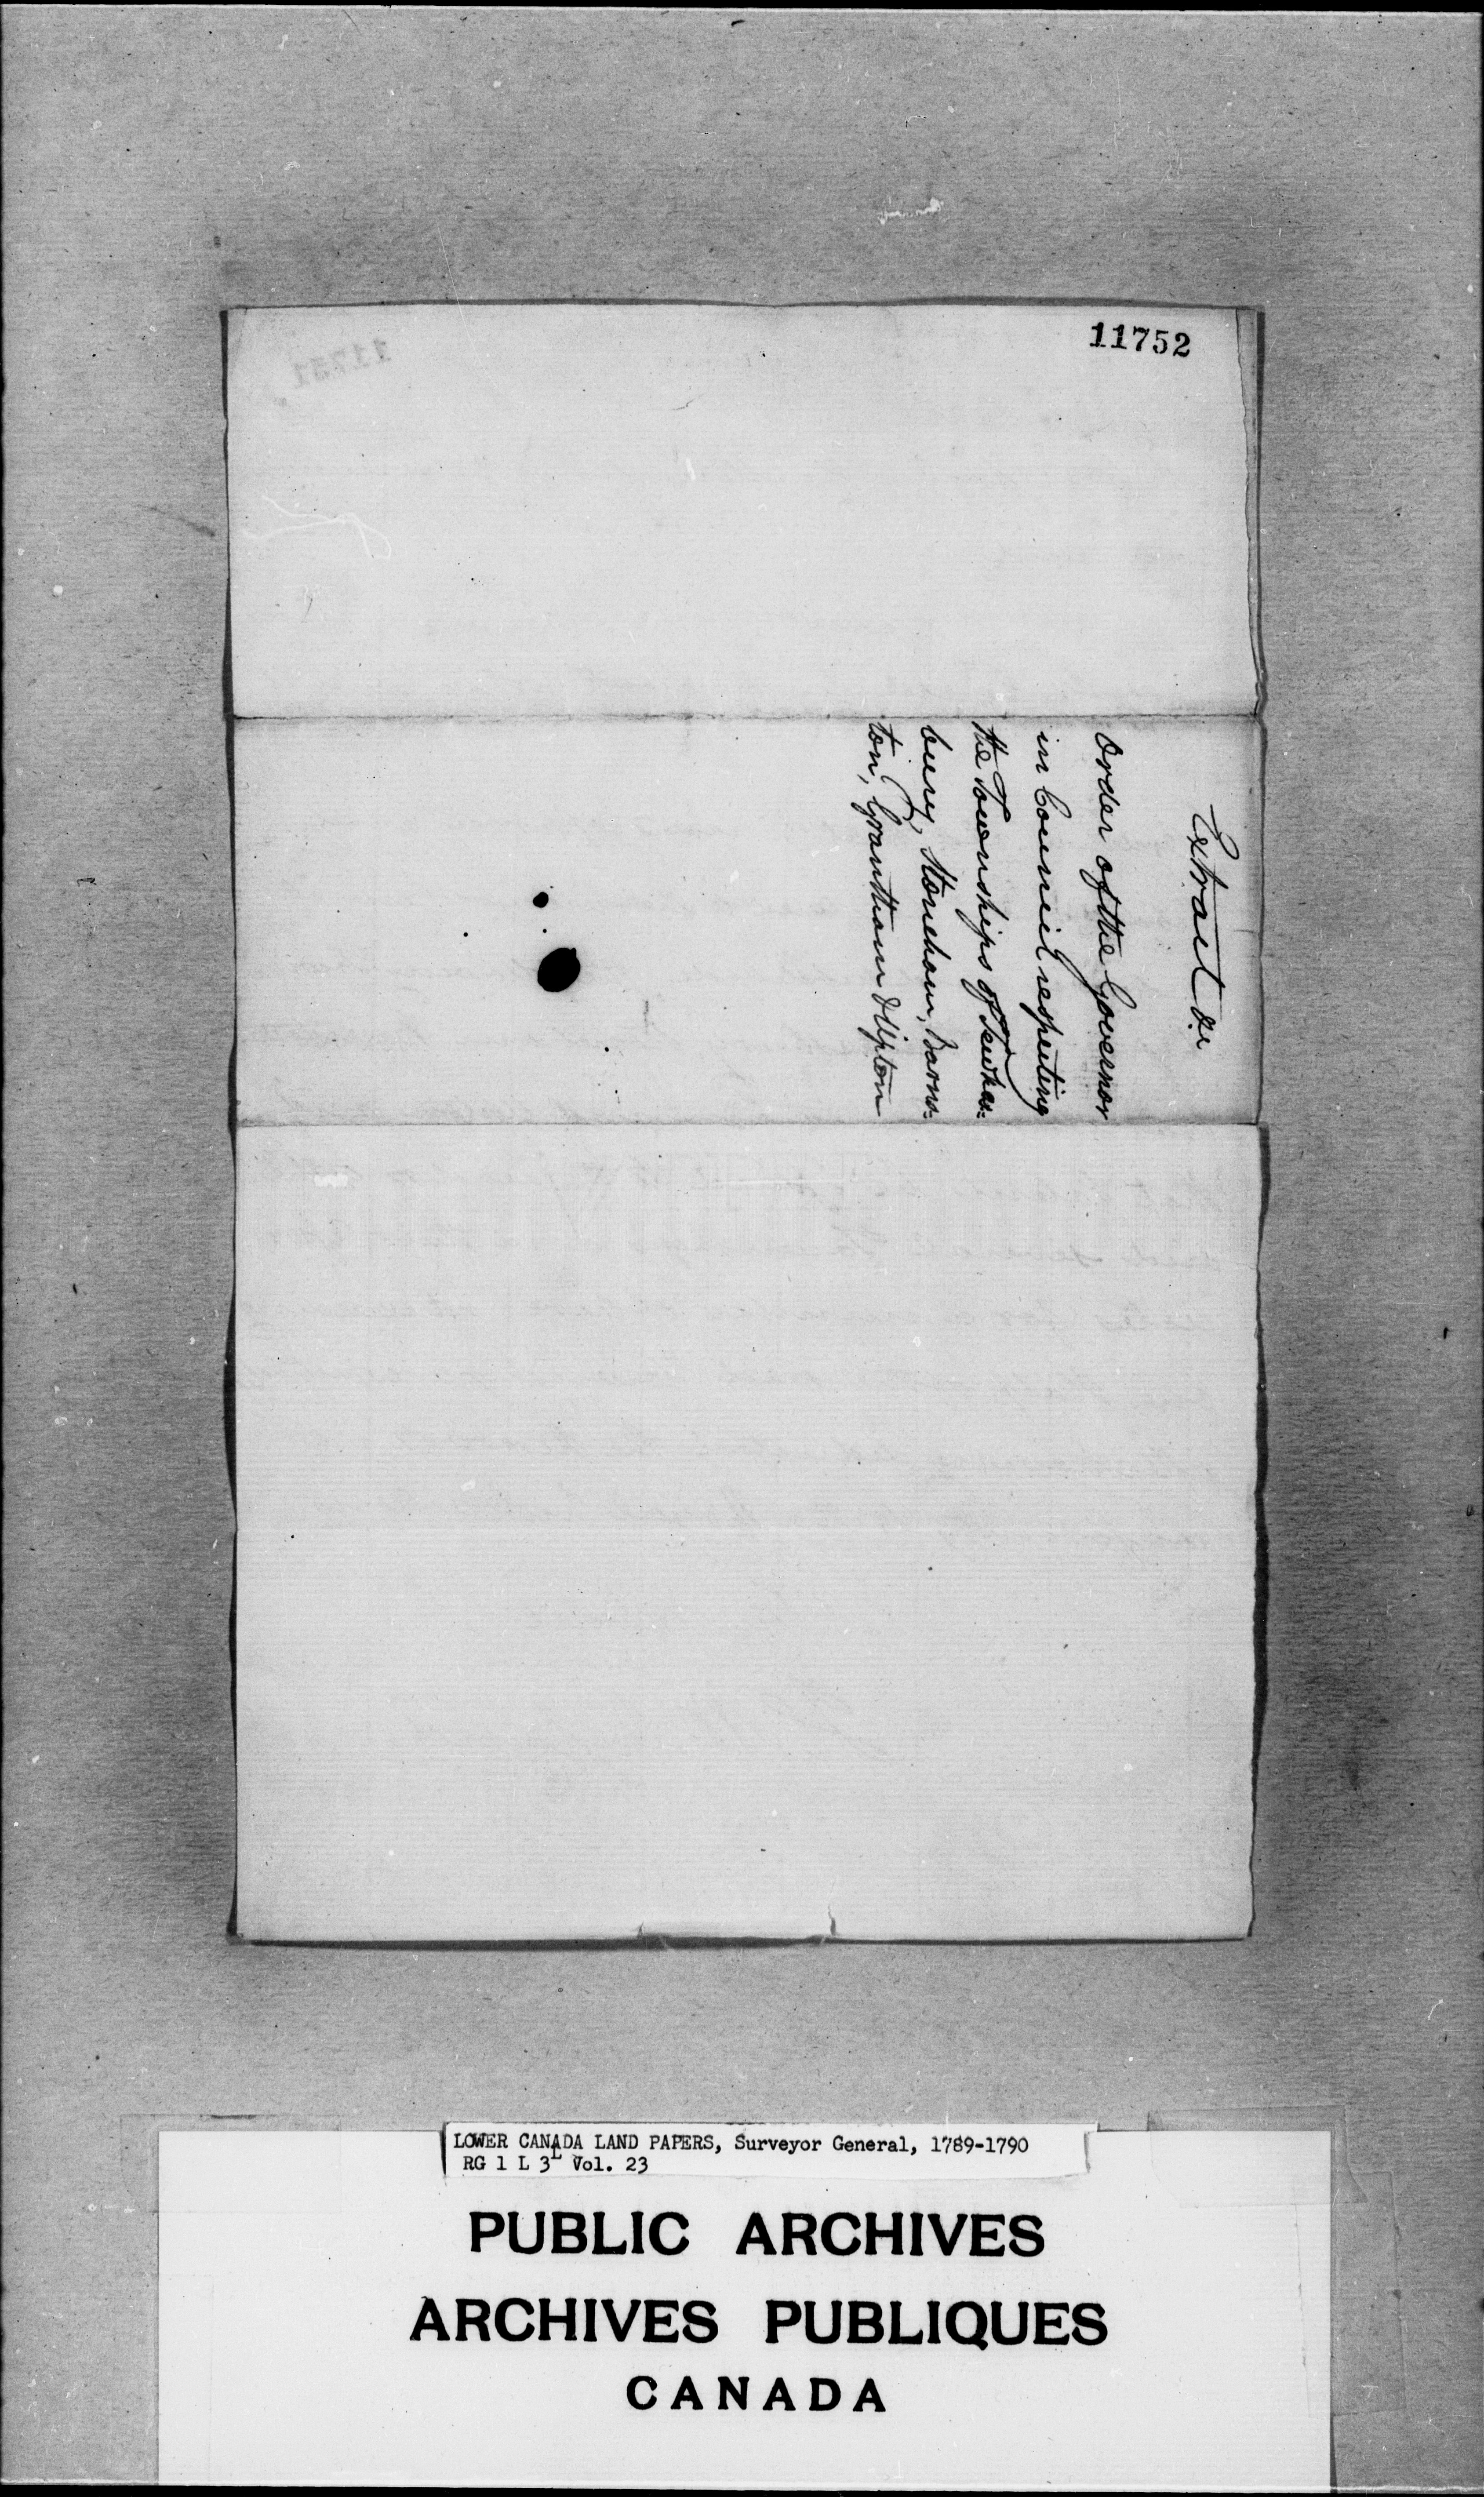 11752
Extract &c
Order of the Governor
in Council respecting
the Townships of Tewkes=
bury, Stoneham, Barns=
ton, Grantham & Upton
LOWER CANADA LAND PAPERS, Surveyor General, 1789-1790
RG 1 L 3L Vol. 23
PUBLIC ARCHIVES
ARCHIVES PUBLIQUES
CANADA